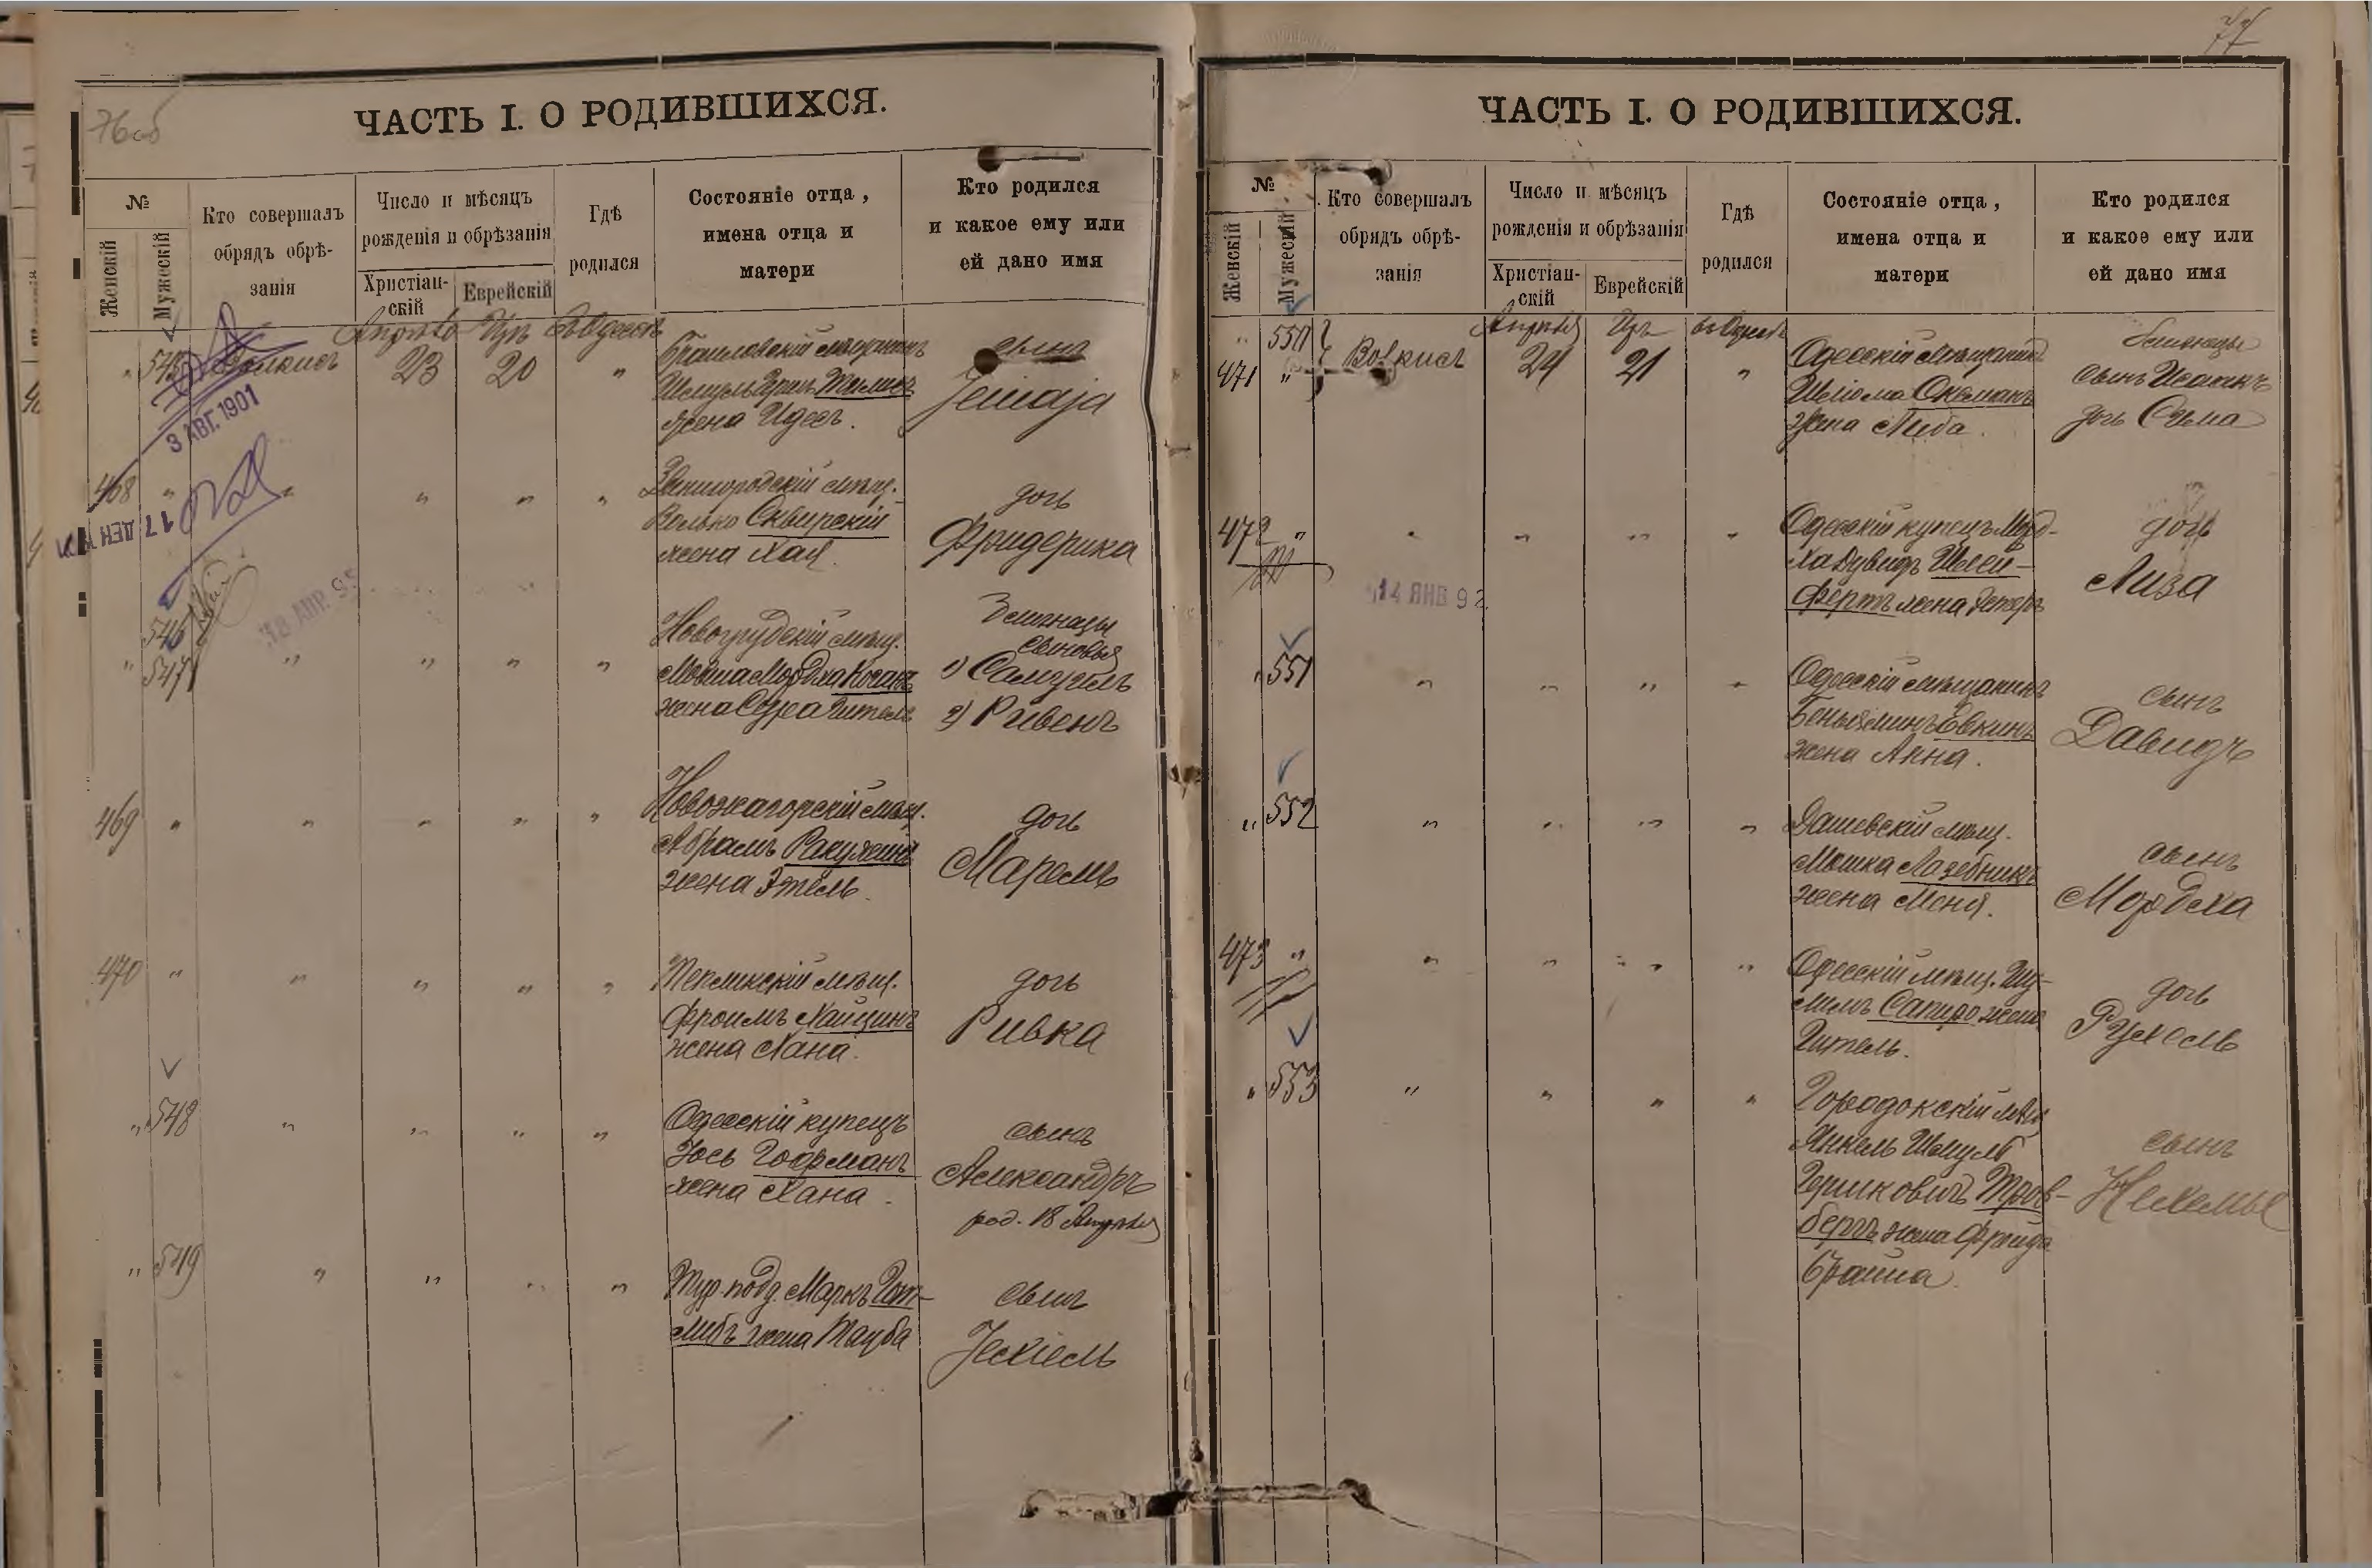 76об
ЧАСТЬ I. О РОДИВШИХСЯ.
№
Женскій
Мужескій
Кто совершалъ
обрядъ обрѣ-
занія
Число и мѣсяцъ
рожденія и обрѣзанія
Христіан-
скій
Еврейскій
Гдѣ
родился
Состояніе отца,
имена отца и
матери
Кто родился
и какое ему или
ей дано имя
Апрѣля Иръ въ Одессѣ
" 545 23 20 "
Браиловскій мѣщанинъ
жена Идесъ.
сынъ
Іешаја
3 АВГ. 1901
468 " " " " "
Звенигородскій мѣщ.
Волько Сквирскій
жена Хая.
дочь
Фридерика
17 ДЕК
28 АПР. 95
546
" 547 " " " "
Новогрудскій мѣщ.
Мовша Мордха Коганъ
жена Сура Гитель
Близнецы
сыновья
1) Самуилъ
2) Рувенъ
469 " " " " "
Новожагорскій мѣщ.
Абрамъ
жена Этель.
дочь
Маремъ
470 " " " " "
Тепликскій мѣщ.
Фроимъ
жена Хана.
дочь
Ривка
" 548 " " " "
Одесскій купецъ
Іось Гофманъ
жена Хана.
сынъ
Александръ
род. 18 Апрѣля
" 549 " " " "
Тур. подд. Маркъ Гот-
либъ жена Тауба
сынъ
Іехіель
77
ЧАСТЬ I. О РОДИВШИХСЯ.
№
Женскій
Мужескій
Кто совершалъ
обрядъ обрѣ-
занія
Число и мѣсяцъ
рожденія и обрѣзанія
Христіан-
скій
Еврейскій
Гдѣ
родился
Состояніе отца,
имена отца и
матери
Кто родился
и какое ему или
ей дано имя
Апрѣля Иръ въ Одессѣ
" 550
471 " Вовкисъ 24 21 "
Одесскій мѣщанинъ
Шліома Оксманъ
жена Либа.
близнецы
сынъ Исаакъ
дочь Сима
472 " " " " "
Одесскій купецъ Морд-
ха Дувидъ Шлей-
фертъ жена Эстеръ
дочь
Лиза
14 ЯНВ 92
" 551 " " " "
Одесскій мѣщанинъ
Беньяминъ Евкинъ
жена Анна.
сынъ
Давидъ
" 552 " " " "
Дашевскій мѣщ.
Мошка Лазебникъ
жена Меня.
сынъ
Мордха
473 " " " " "
Одесскій мѣщ. Шу-
лимъ Сапиро жена
Гитель.
дочь
Рухель
" 553 " " " "
Городокскій мѣщ.
Янкель Шмуль
Гершковичъ Тров-
бергъ жена Фрейда
Браина.
сынъ
Нехемье